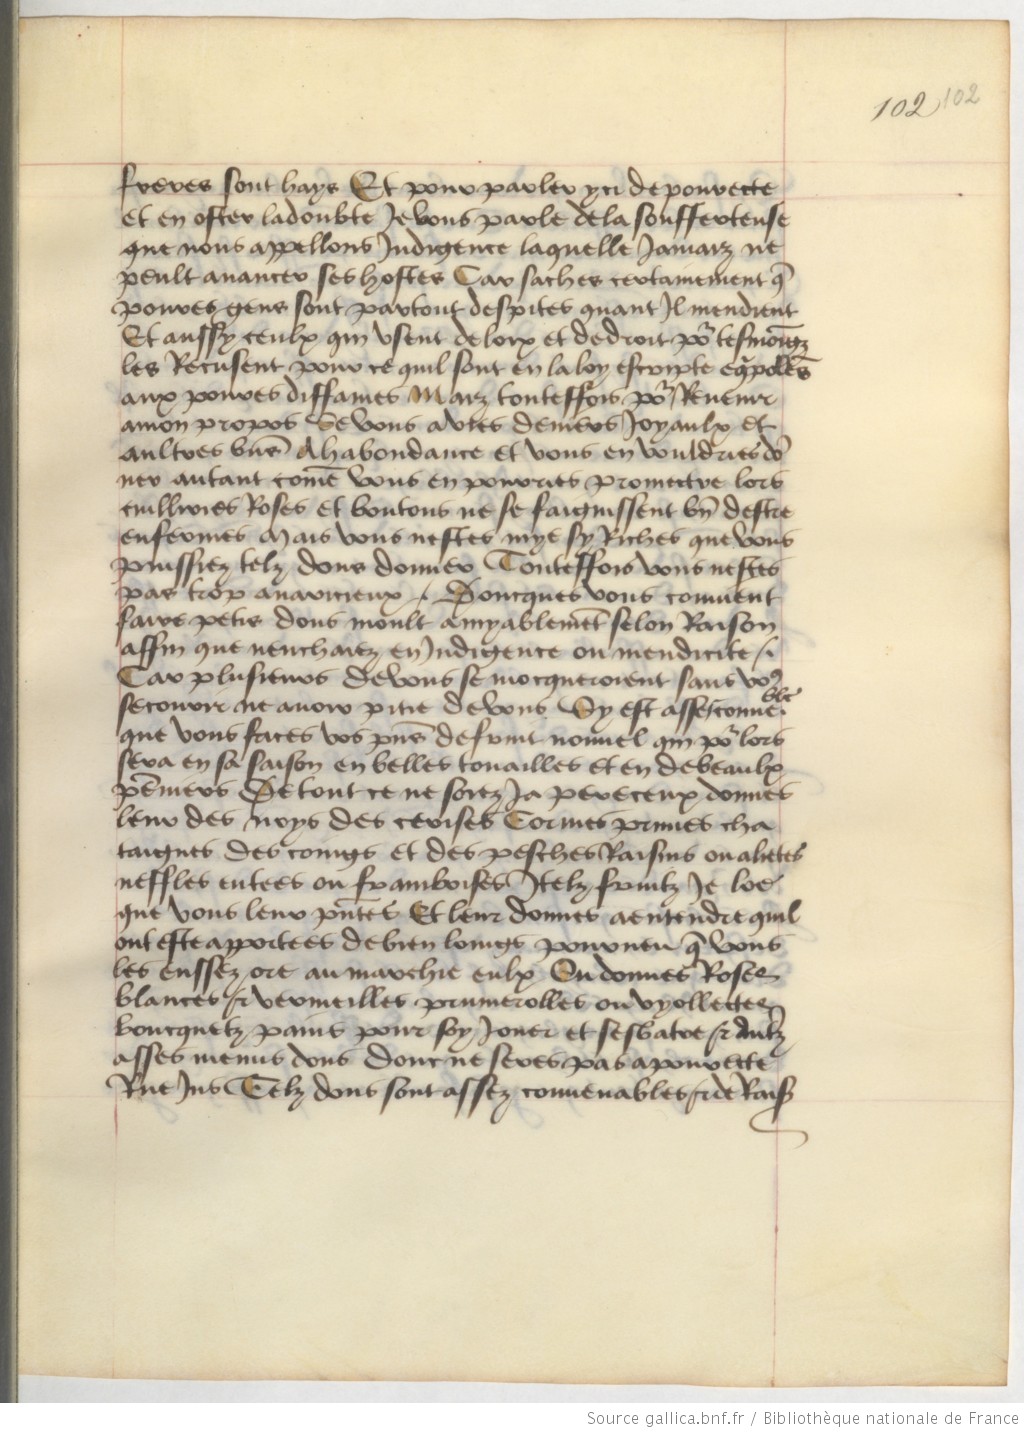 102 102
freres sont hays Et pour parler yci de pourette
et en oster la doubte Je vous parle de la souffreteuse
que nous appellons Indigence laquelle Jamaiz ne
peult auancer ses hostes Car saches certainement q̄
poures gens sont partout despites quant Il mendient
Et aussy ceulx qui vsent de loix et de droit po᷑ tesmoingz
les Recusent pour ce quil sont en la loy escripte
aux poures diffames Maiz touteffois po᷑ Reuenir
a mon propos Se vous auies deniers Joyaulx et
aultres biēs A habondance Et vous en vouldries dō
ner autant comē vous en pourries promectre lors
cuillries Roses et boutons ne se faignissent bn̄ destre
enfermes Mais vous nestes mye sy Riches que vous
puissiez telz dons donner Touteffois vous nestes
pas trop auaricieux . Doncques vous conuient
faire petis dons moult amyablemēt selon Raison
affin que nencharez en Indigence ou mendicite /.
Car plusieurs de vous se mocqueroient sans vo᷑
secourir ne auoir pitie de vous Sy est assez conue.ble
que vous faces vos pn̄s de fruit nouuel qui po᷑ lors
sera en sa saison en belles touailles et en de beaulx
pēniers De tout ce ne soiez Ja pereceux donnes
leur des noys des cerises Cormes prunes cha
taignes des coings et des pesches Raisins ou alietes
neffles entees ou framboises Itelz fruitz Je loe
que vous leur pn̄tes Et leur donnes a entendre quil
ont este apportees de bien loings pourueu q̄ vous
les eussez ore au marchie eulx Ou donnes Roses
blances & vermeilles prumerolles ou vyollettes
boucquetz pains pour soy Jouer et sesbatre & aultz
asses menus dons Donc ne seres pas a pourette
Rue Jus Telz dons sont assez conuenables & de Raisō
Source gallica.bnf.fr / Bibliothèque nationale de France